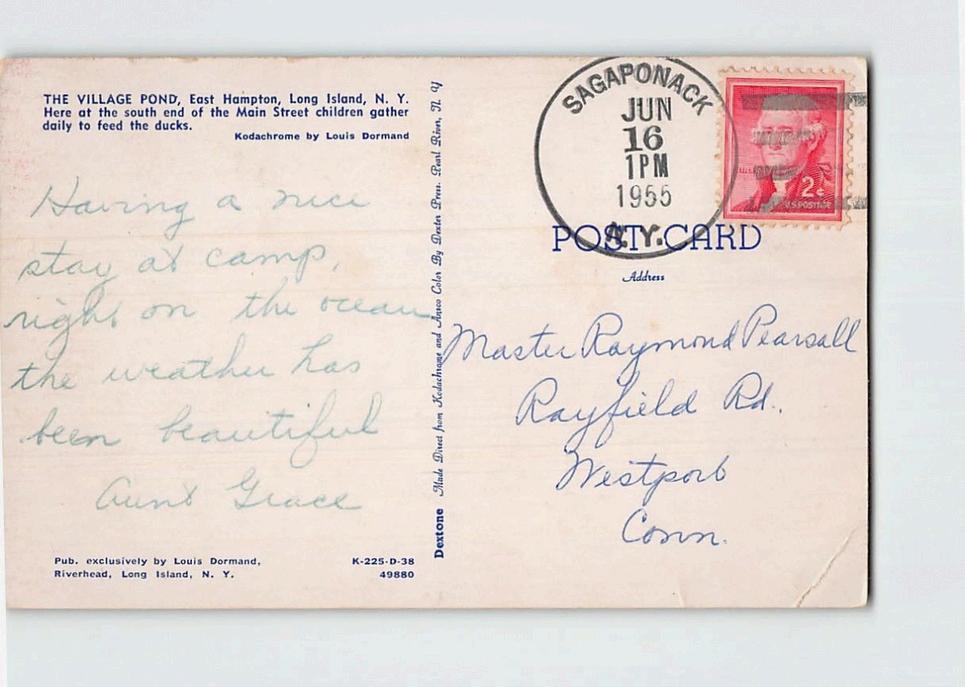 THE VILLAGE POND, East Hampton, Long Island, N. Y.
Here at the south end of the Main Street children gather
daily to feed the ducks.
Kodachrome by Louis Dormand
Having a nice
stay at camp,
right on the ocean
the weather has
been beautiful
Aunt Grace
Pub. exclusively by Louis Dormand,
Riverhead, Long Island, N. Y.
K-225-D-38
49880
Dextone Made Direct from Kodachrome and Ansco Color By Dexter Press, Pearl River, N. Y
SAGAPONACK
JUN
16
1PM
1955
N.Y.
2¢
U.S. POSTAGE
POST CARD
Address
Master Raymond Pearsall
Rayfield Rd.
Westport
Conn.